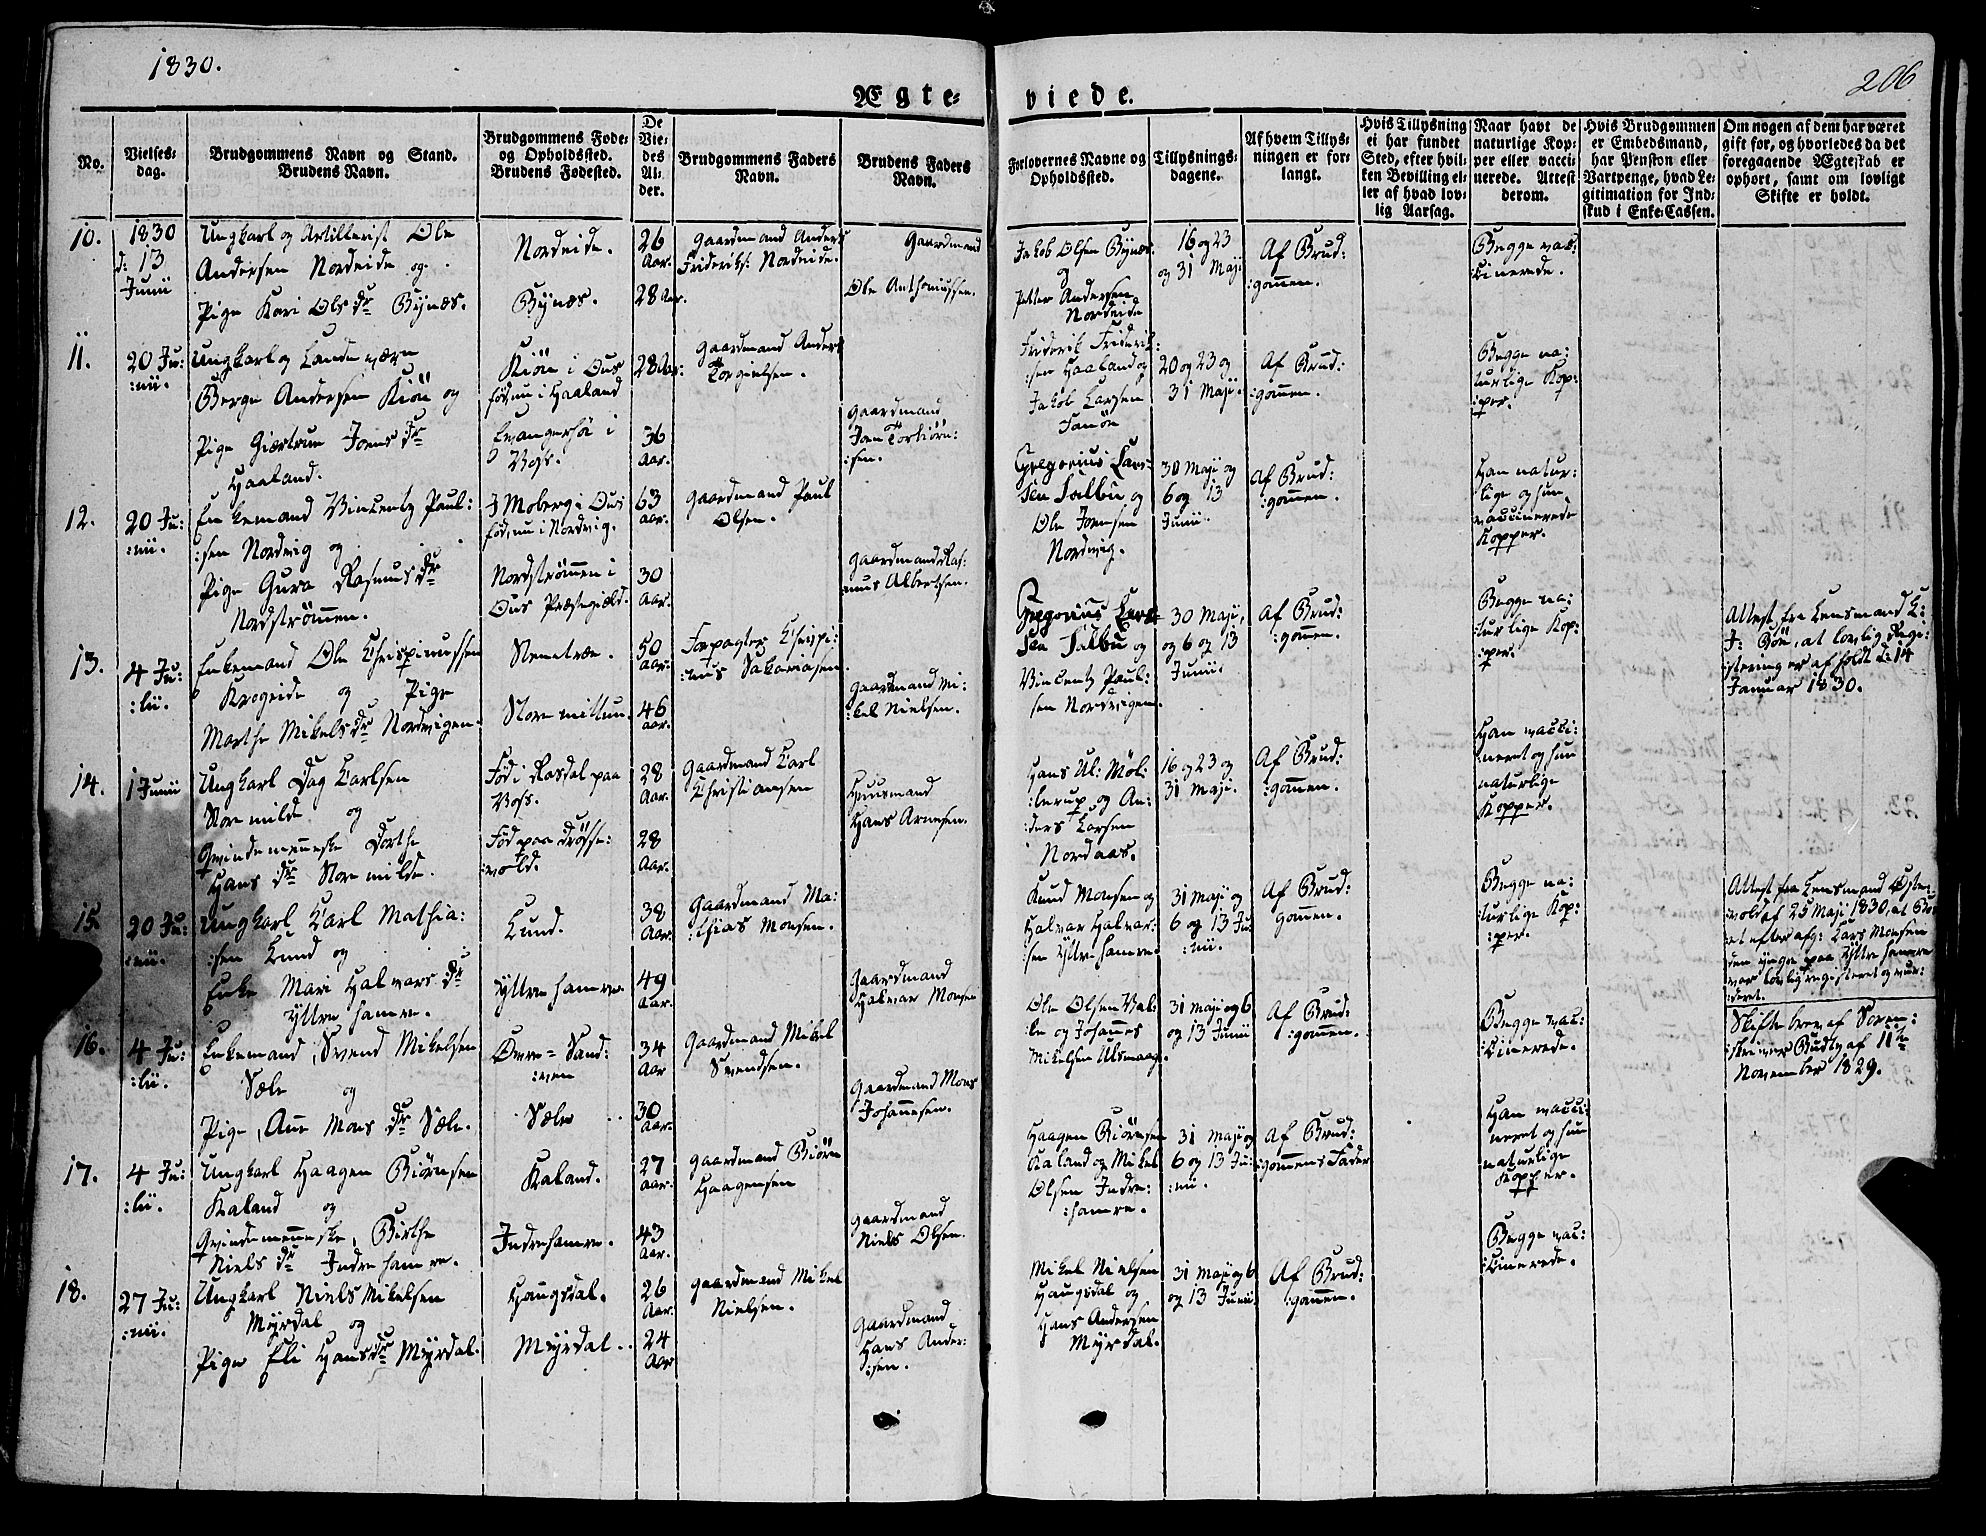 1830.
206
Ægte-
viede.
No.
Vielses-
dag.
Brudgommens Navn og Stand.
Brudens Navn.
Brudgommens Føde-
og Opholdssted.
Brudens Fødested.
De
Vie-
des
Al-
der.
Brudgommens Faders
Navn.
Brudens Faders
Navn.
Forlovernes Navne og
Opholdssted.
Tillysnings-
dagene.
Af hvem Tillys-
ningen er for-
langt.
Hvis Tillysning
ei har fundet
Sted, efter hvil-
ken Bevilling el-
ler af hvad lov-
lig Aarsag.
Naar havt de
naturlige Kop-
per eller vacci-
nerede. Attest
derom.
Hvis Brudgommen
er Embedsmand,
har Pension eller
Vartpenge, hvad Le-
gitimation for Ind-
skud i Enke-Cassen.
Om nogen af dem har været
gift før, og hvorledes da det
foregaaende Ægteskab er
ophørt, samt om lovligt
Skifte er holdt.
10.
1830
d: 13
Junii
Ungkarl og Artillerist Ole
Andersen Nordeide og
Pige Kari Ols dr Bynæs.
Nordeide.
Bynæs.
26
Aar.
28 Aar.
Gaardmand Anders
Frideriks: Nordeide.
Gaardmand
Ole Anthoniussen.
Jakob Olsen Bynæs
og
Petter Andersen
Nordeide
16 og 23
og 31 Maji
Af Brud:
:gommen.
Begge vac:
:cinerede.
11.
20 Ju:
:nii.
Ungkarl og Landeværn
Berge Andersen Kiön og
Pige Giærtrue Joens dr
Haaland.
Kiön i Ous
fød, nu i Haaland
Evangerhöi i
Voss.
28 Aar:
36
Aar.
Gaardmand Anders
Torgielsen.
Gaardmand
Joen Torbiörn:
:sen.
Friderik Friderik:
:sen Haaland og
Jakob Larsen
20 og 23 og
31 Maji.
Af Brud:
:gommen.
Begge na:
turlige Kop:
:per.
12.
20 Ju:
:nii.
Enkemand Vincentz Paul:
:sen Nordvig og
Pige Gura Rasmus dr
Nordströmen.
I Moberg i Ous
fød, nu i Nordvig.
Nordströmmen i
Ous Præstegiæld.
63
Aar.
30
Aar.
Gaardmand Paul
Olsen.
Gaardmand Ras:
mus Albertsen.
Gregorius Lar:
sen Salbu og
Ole Joensen
Nordvig.
30 Maji og
6 og 13
Junii.
Af Brud:
:gommen.
Han natur:
:lige og hun
vaccinerede
Kopper.
13.
4 Ju:
:lii.
Enkemand Ole Chrispinussen
Krogeide og Pige
Marthe Mikels dr Nordvigen.
Stenetræe.
Storemittun.
50
Aar.
46
Aar.
Forpagter Chrispi:
:nus Sakariasen
Gaardmand Mi:
:kel Nielsen.
Gregorius Lar:
sen Salbu og
Vincentz Paul:
sen Nordvigen.
30 Maji,
og 6 og 13
Junii.
Af Brud:
:gommen.
Begge na:
:turlige Kop:
:per.
Attest fra Lensmand
at lovlig Regi:
:stering er afholdt d: 14
Januar 1830.
14.
1 Junii
Ungkarl Dag Carlsen
Storemilde og
Qvindemenneske Dorthe
Hans dr Storemilde.
Fød i Rasdal paa
Voss.
Fød paa
:vold.
28
Aar.
28
Aar.
Gaardmand Carl
Christiansen
Huusmand
Hans Arnesen.
Hans Ul: Möl:
:lerup og An:
:ders Larsen
Nordaas.
16 og 23 og
31 Maji.
Af Brud:
:gommen.
Han vacci:
neret og hun
naturlige
Kopper.
15.
20 Ju:
:nii.
Ungkarl Carl Mathia:
:sen Lund og
Enke Mari Halvars dr
Yttrehamre.
Lund.
Yttrehamre
38
Aar.
49
Aar.
Gaardmand Ma:
:thias Monsen.
Gaardmand
Halvar Monsen
Knud Monsen og
Halvar Halvar:
sen Yttrehamre.
31 Maji og
6 og 13 Ju:
:nii.
Af Brud:
gommen.
Begge na:
turlige Kop:
:per.
Attest fra Lensmand Østen:
:vold af 25 Maji 1830, at Bo:
et efter afg: Lars Monsen
den yngre paa Yttrehamre
var lovlig registeret og vur:
:deret.
16.
4 Ju:
:lii.
Enkemand, Svend Mikelsen
Sæle og
Pige, Ane Mons dr Sæle.
Øvre-Sand:
:ven
Sæle
34
Aar
30
Aar.
Gaardmand Mikel
Svendsen.
Gaardmand Mons
Johannesen.
Ole Olsen Val:
le og Johannes
Mikelsen Ulsmaag.
31 Maji og 6
og 13 Junii
Af Brud:
:gommen.
Begge vac:
:cinerede.
Skiftebrev af Soren:
:skriver Budtz af 11te
November 1829.
17.
4 Ju:
:lii.
Ungkarl Haagen Biörnsen
Kaland og
Qvindemenneske, Birthe
Niels dr Indrehamre.
Kaland.
Indrehamre.
27
Aar.
43
Aar.
Gaardmand Biörn
Haagensen
Gaardmand
Niels Olsen.
Haagen Biörnsen
Kaland og Mikel
Olsen Indre:
:hamre.
31 Maji og
6 og 13 Ju:
:nii.
Af Brud:
:gommens Fader
Han vacci:
neret og hun
naturlige
Kopper.
18.
27 Ju:
:nii.
Ungkarl Niels Mikelsen
Myrdal og
Pige Eli Hans dr Myrdal.
Haugsdal.
Myrdal.
26
Aar.
24
Aar
Gaardmand Mikel
Nielsen.
Gaardmand
Hans Ander:
:sen.
Mikel Nielsen
Haugsdal og
Hans Andersen
Myrdal.
31 Maji og 6
og 13 Junii
Af Brud:
:gommen.
Begge vac:
:cinerede.